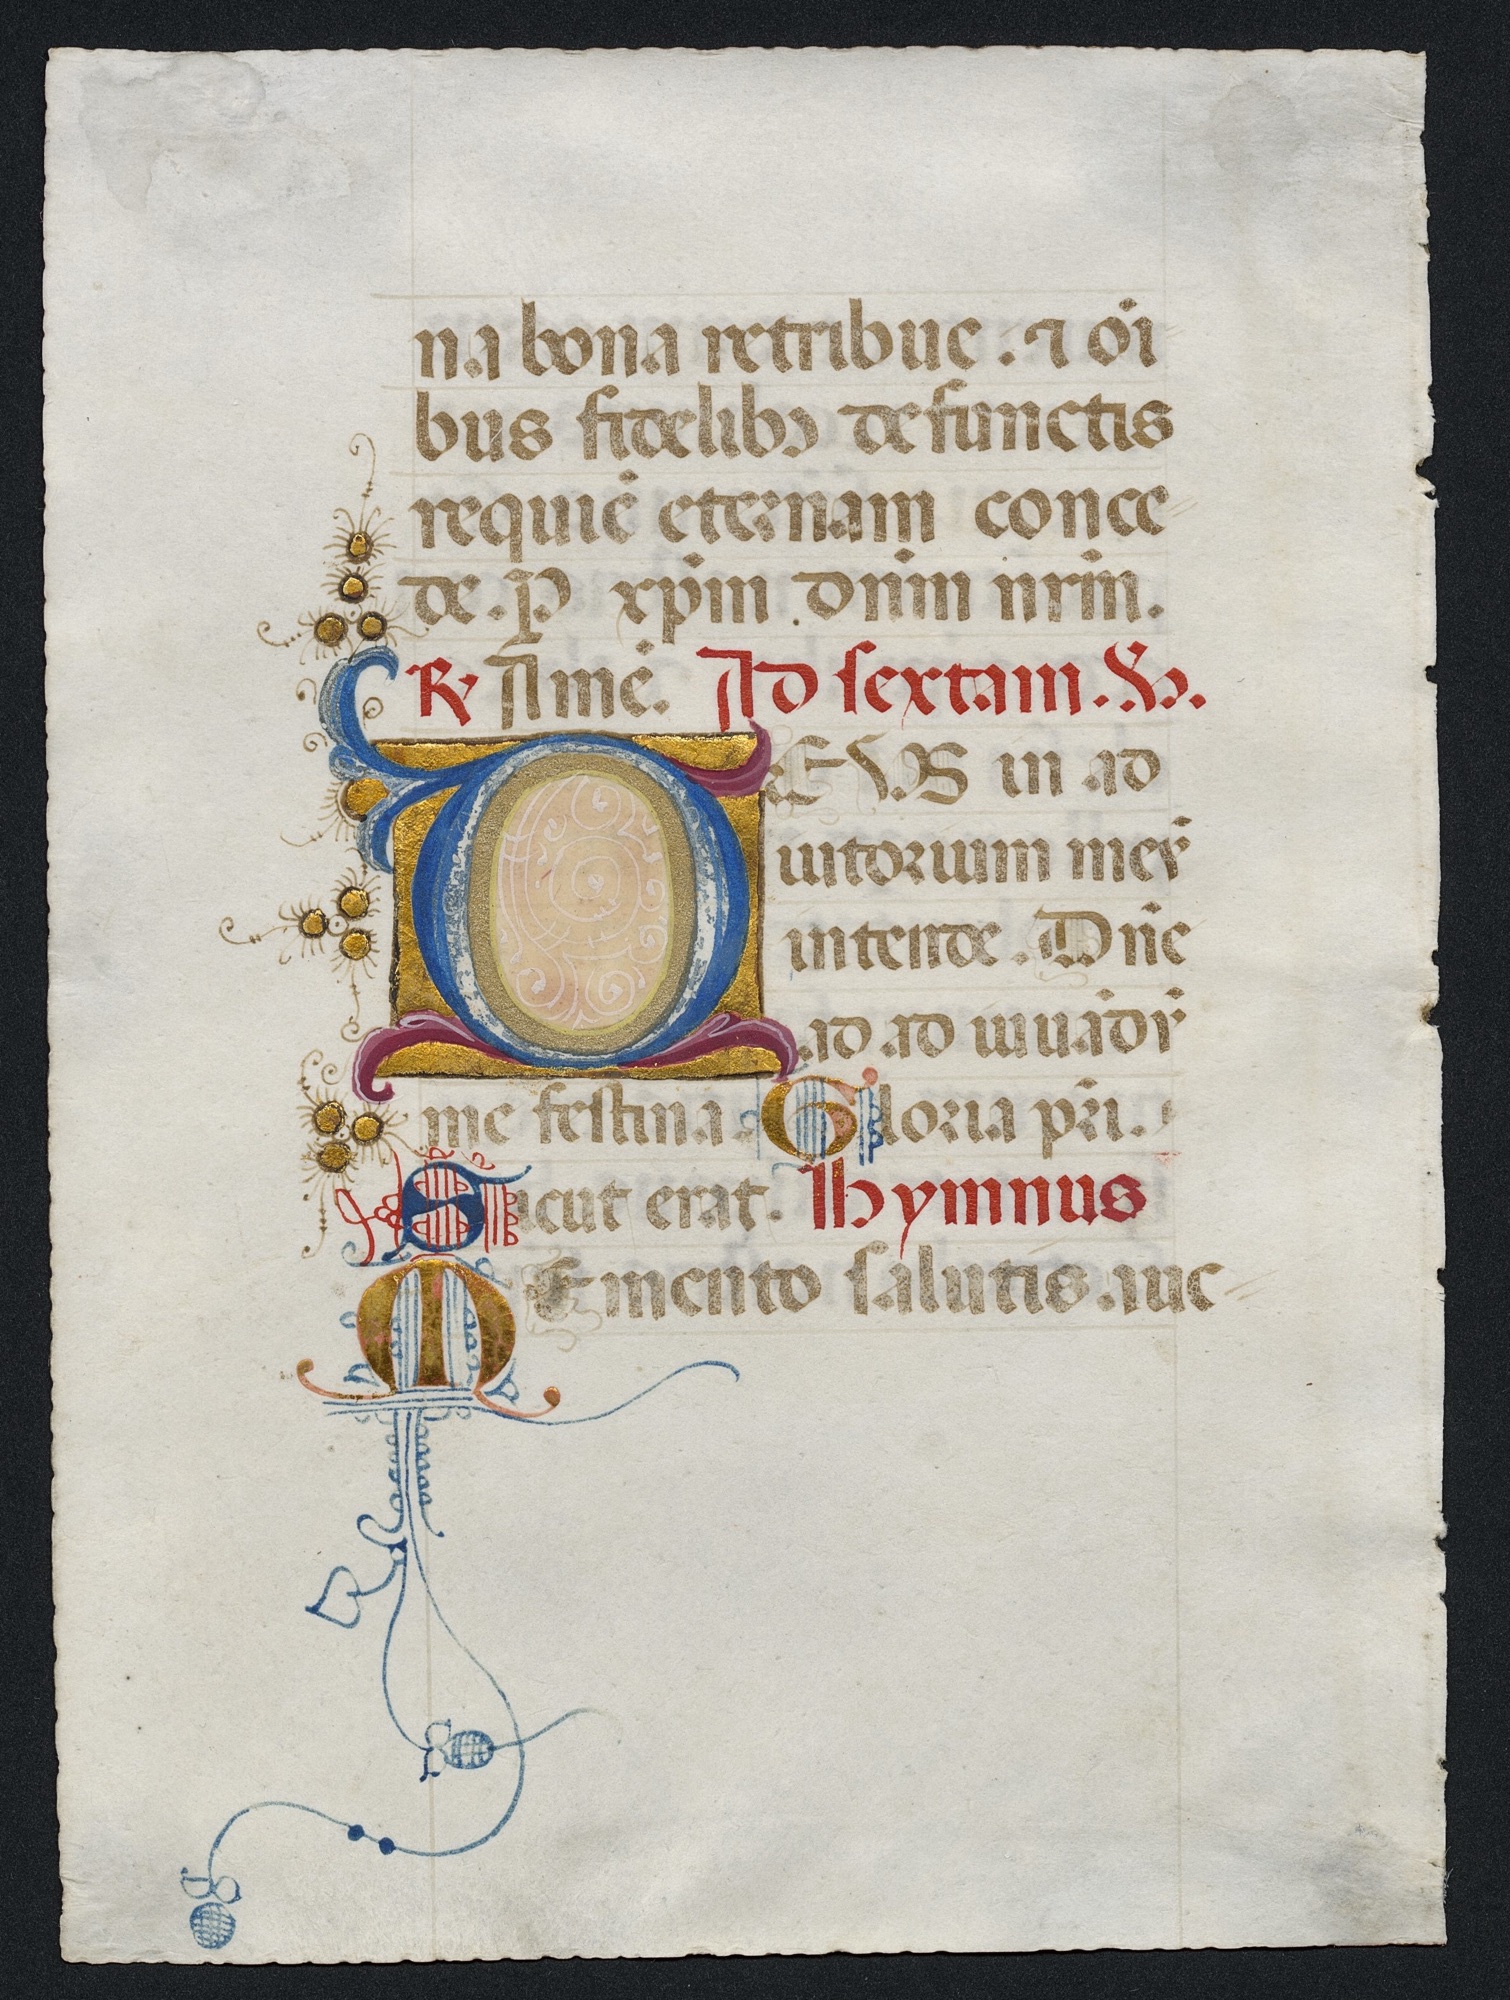 na bona retribue . ⁊ oı̄
bus fidelibꝫ defunctis
requiē eternam conce
de . P̄ xp̄m dn̄m nr̄m .
℟ Amē. Ad sextam . ℣.
DEVS in ad
iutorium meū
intende . Dn̄e
ad ad iuuādū
me festina . Gloria pr̄i .
Sicut erat . Hymnus
MEmento salutis auc